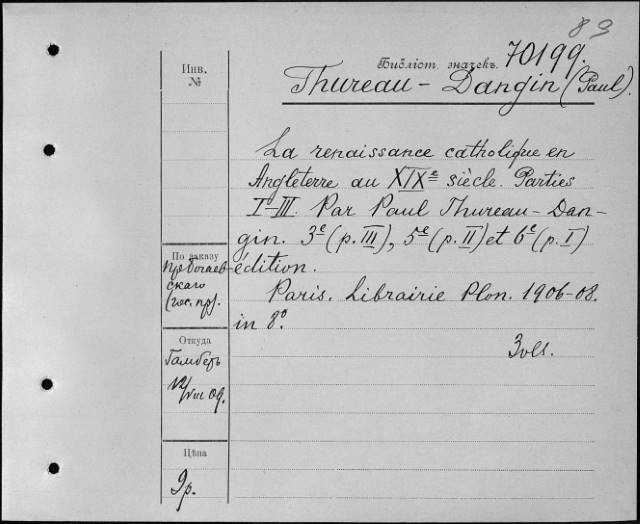 83
Библіот. значекъ. 70199.
Thureau-Dangin (Paul).
Инв.
№
La renaissance catholique en
Angleterre au XIXe siècle. Parties
I-III. Par Paul Thureau-Dan-
gin. 3e (p. III), 5e (p. II) et 6e (p. I)
édition.
Paris. Librairie Plon. 1906-08.
in 8º.
3 vls.
По заказу
скаго
Откуда
Гамберъ
12/VIII 09.
Цѣна
9р.